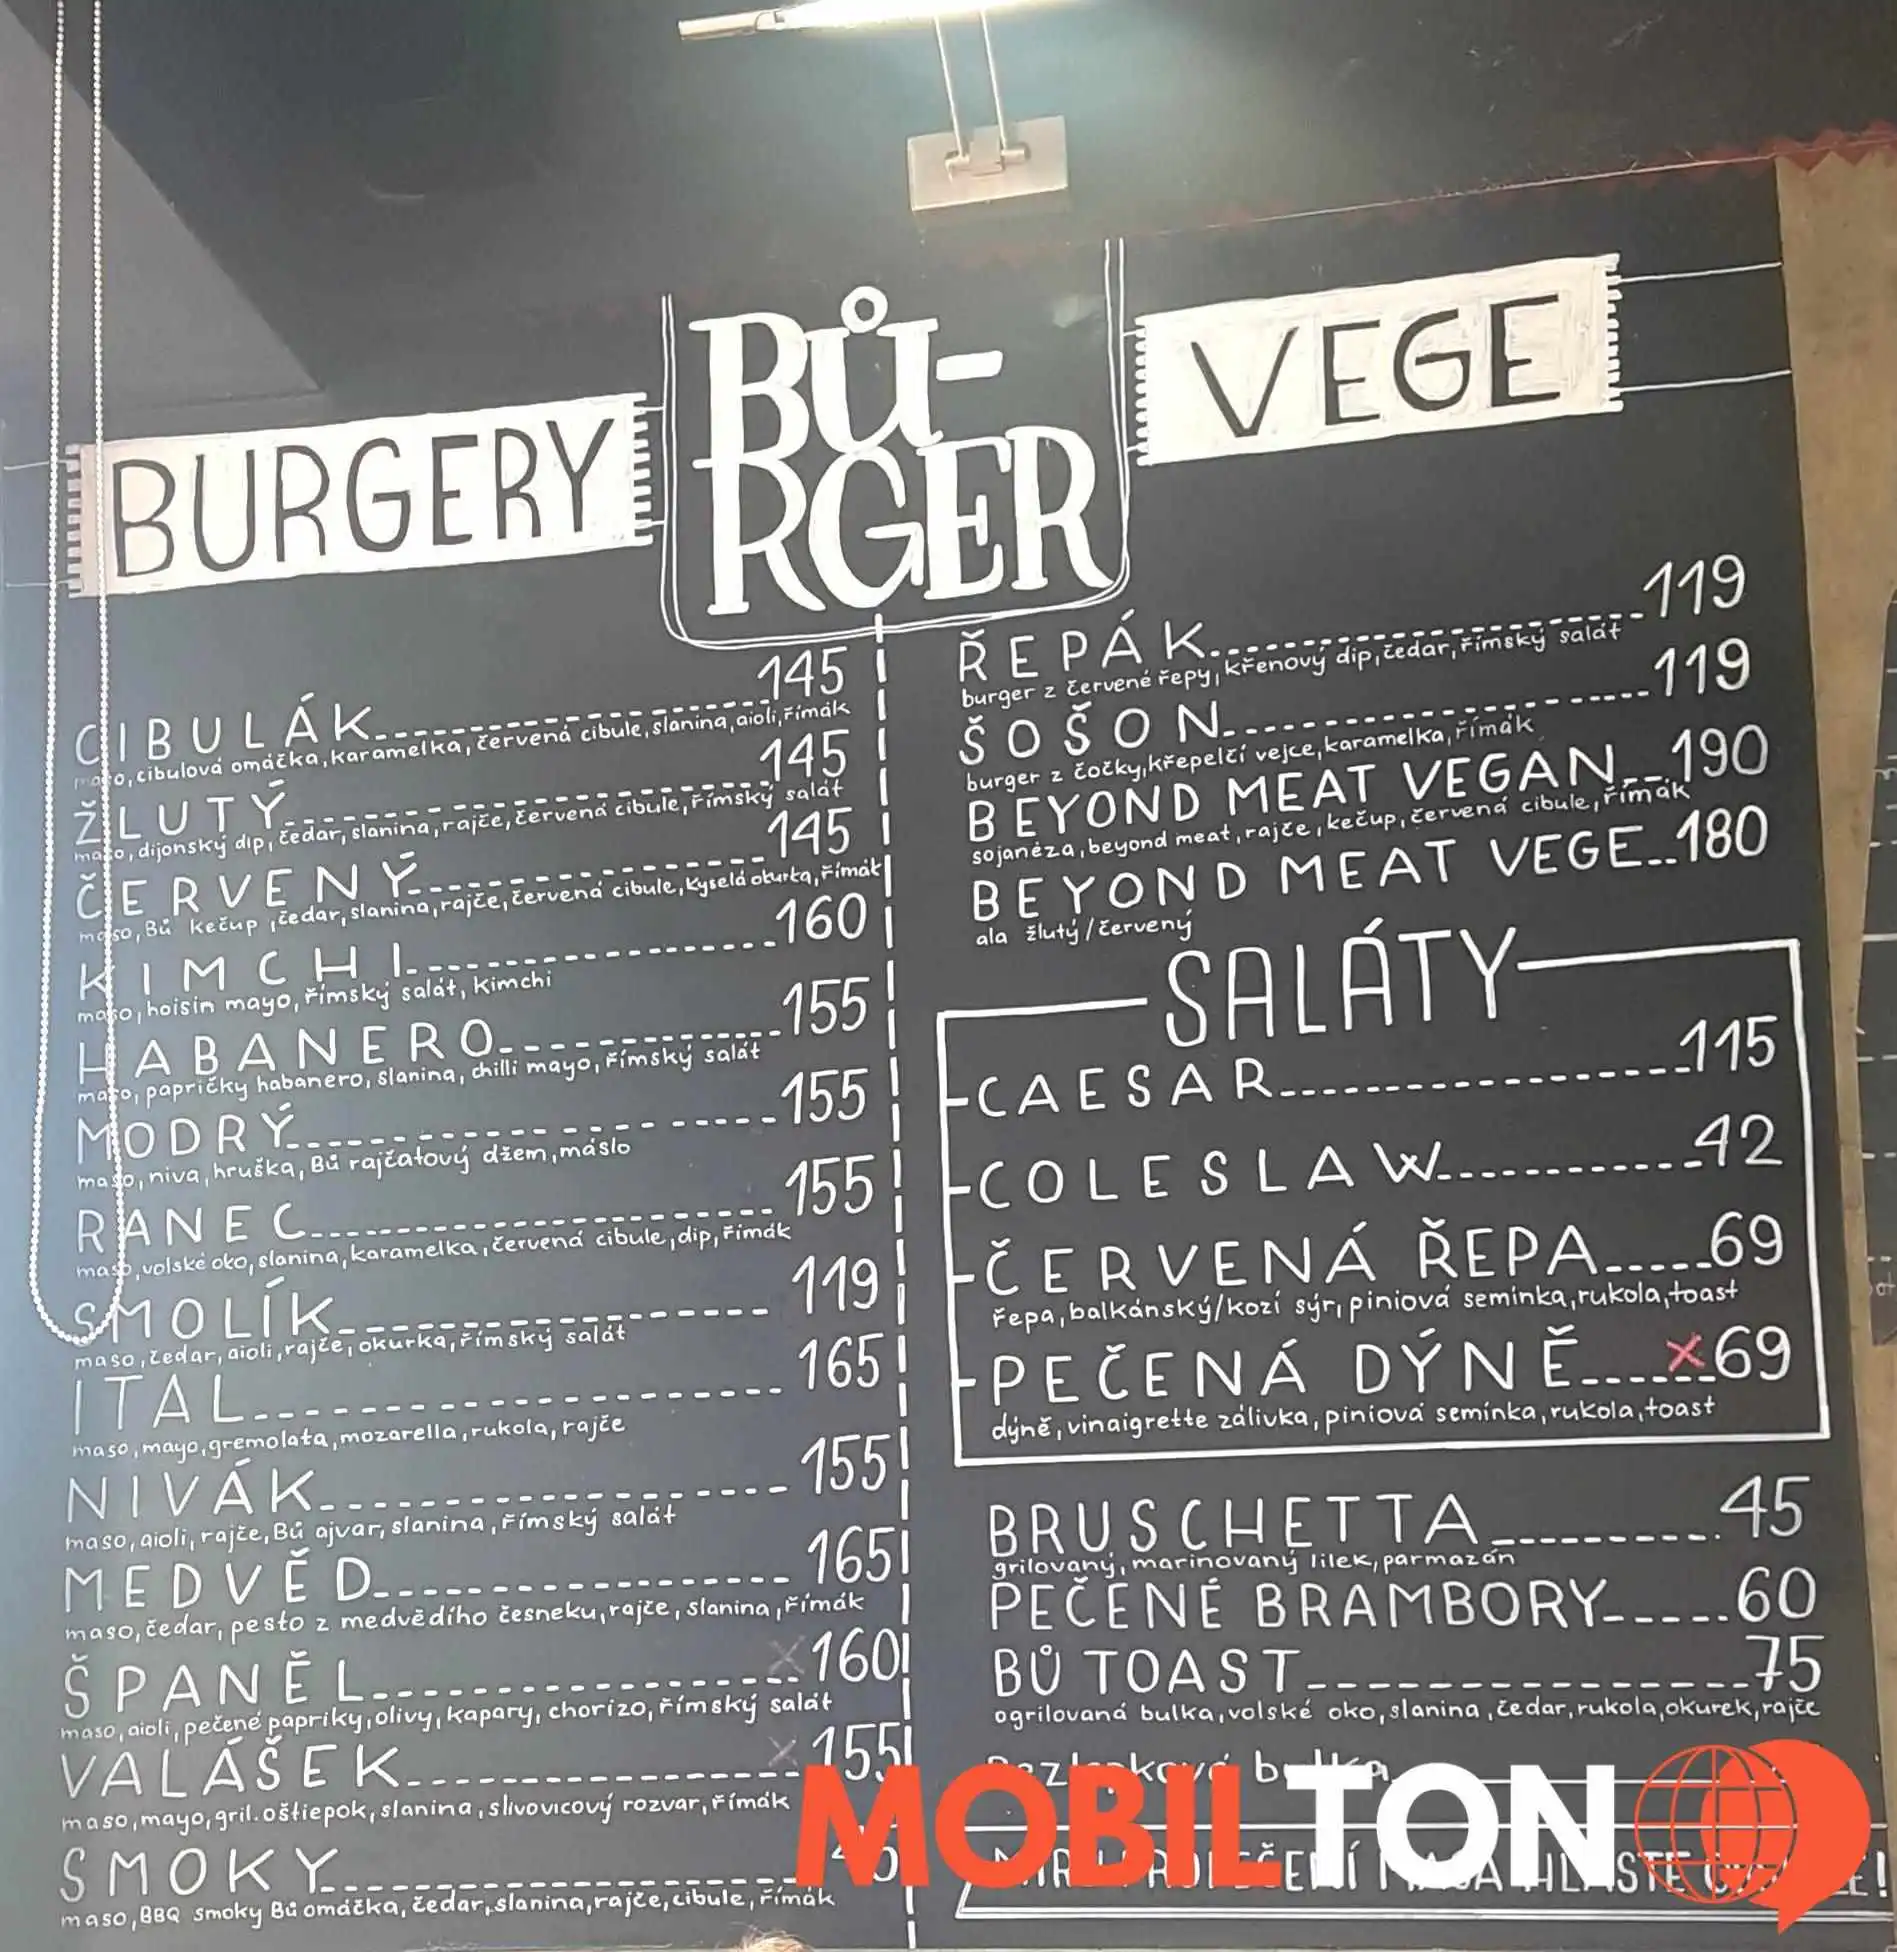 BURGERY
BŮ-
RGER
VEGE
CIBULÁK 145
maso, cibulová omáčka, karamelka, červená cibule, slanina, aioli, římák
ŽLUTÝ 145
maso, dijonský dip, čedar, slanina, rajče, červená cibule, římský salát
ČERVENÝ 145
maso, Bů kečup, čedar, slanina, rajče, červená cibule, kyselá okurka, římák
KIMCHI 160
maso, hoisin mayo, římský salát, kimchi
HABANERO 155
maso, papričky habanero, slanina, chilli mayo, římský salát
MODRÝ 155
maso, niva, hruška, Bů rajčatový džem, máslo
RANEC 155
maso, volské oko, slanina, karamelka, červená cibule, dip, římák
SMOLÍK 119
maso, čedar, aioli, rajče, okurka, římský salát
ITAL 165
maso, mayo, gremolata, mozarella, rukola, rajče
NIVÁK 155
maso, aioli, rajče, Bů ajvar, slanina, římský salát
MEDVĚD 165
maso, čedar, pesto z medvědího česneku, rajče, slanina, římák
ŠPANĚL x 160
maso, aioli, pečené papriky, olivy, kapary, chorizo, římský salát
VALÁŠEK x 155
maso, mayo, gril. oštiepok, slanina, slivovicový rozvar, římák
SMOKY
maso, BBQ smoky Bů omáčka, čedar, slanina, rajče, cibule, římák
ŘEPÁK 119
burger z červené řepy, křenový dip, čedar, římský salát
ŠOŠON 119
burger z čočky, křepelčí vejce, karamelka, římák
BEYOND MEAT VEGAN 190
sojanéza, beyond meat, rajče, kečup, červená cibule, římák
BEYOND MEAT VEGE 180
ala žlutý / červený
SALÁTY
CAESAR 115
COLESLAW 42
ČERVENÁ ŘEPA 69
řepa, balkánský/kozí sýr, piniová semínka, rukola, toast
PEČENÁ DÝNĚ x 69
dýně, vinaigrette zálivka, piniová semínka, rukola, toast
BRUSCHETTA 45
grilovaný, marinovaný lilek, parmazán
PEČENÉ BRAMBORY 60
BŮ TOAST 75
ogrilovaná bulka, volské oko, slanina, čedar, rukola, okurek, rajče
bulka
MASA HLASTE
MOBILTON